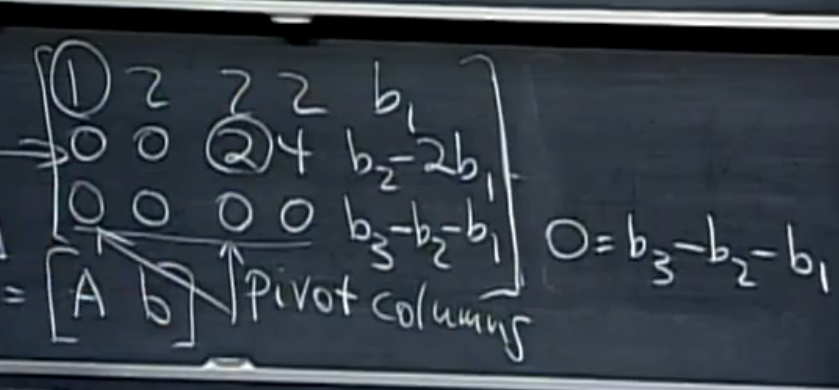 1 2 2 2 b₁
0 0 2 4 b₂-2b₁
0 0 0 0 b₃-b₂-b₁ 0=b₃-b₂-b₁
= [A b] Pivot columns